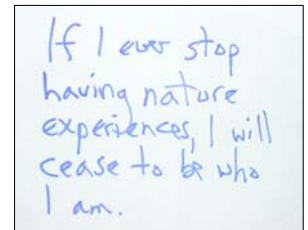 If I ever stop
having nature
experiences, I will
cease to be who
I am.